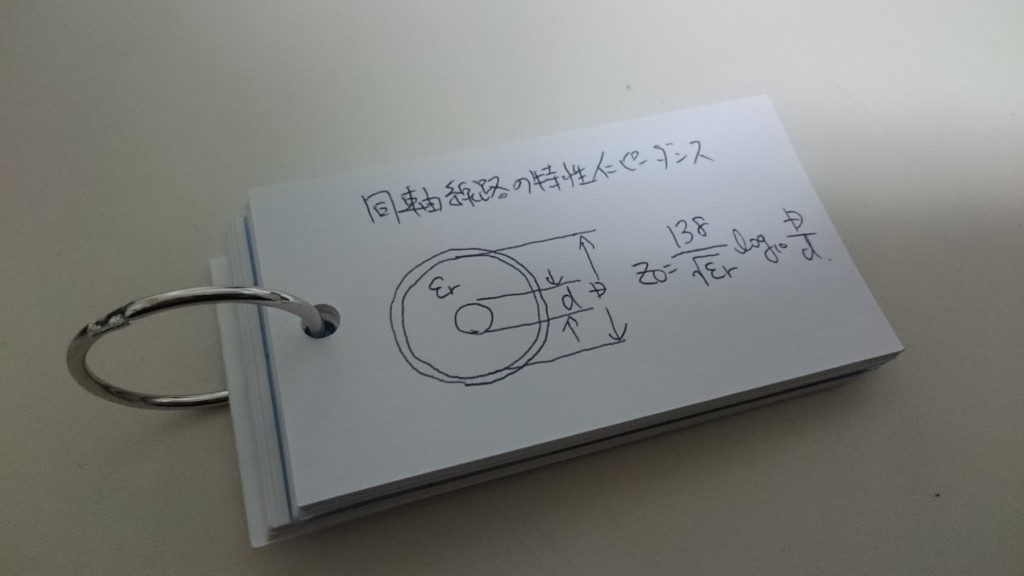 同軸線路の特性インピーダンス
εr
d
D
Z0=138/√εr log10 D/d.